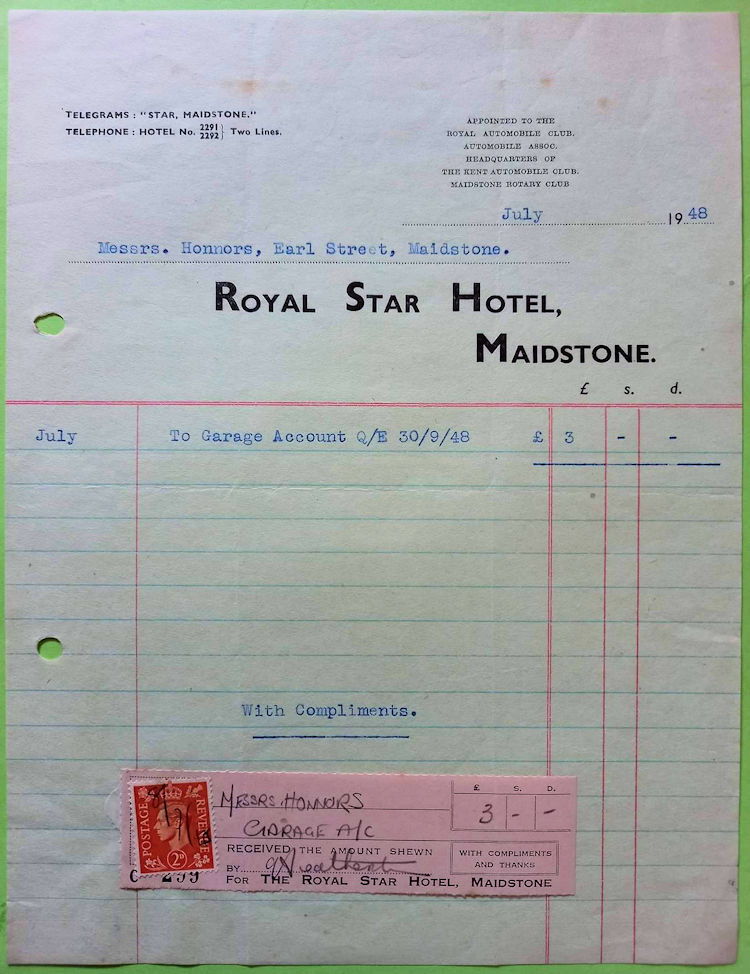 TELEGRAMS: "STAR, MAIDSTONE."
TELEPHONE: HOTEL No. 2291 2292} Two Lines.
APPOINTED TO THE
ROYAL AUTOMOBILE CLUB.
AUTOMOBILE ASSOC.
HEADQUARTERS OF
THE KENT AUTOMOBILE CLUB.
MAIDSTONE ROTARY CLUB
July 1948
Messrs. Honnors, Earl Street, Maidstone.
ROYAL STAR HOTEL,
MAIDSTONE.
£ s. d.
July To Garage Account Q/E 30/9/48 £ 3 - -
With Compliments.
£ S. D.
MESSRS. HONNORS 3 - -
GARAGE A/C
RECEIVED THE AMOUNT SHEWN
BY
WITH COMPLIMENTS
AND THANKS
FOR THE ROYAL STAR HOTEL, MAIDSTONE
POSTAGE REVENUE
2D